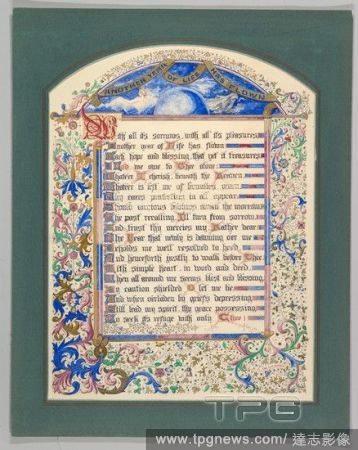 ANOTHER YEAR OF LIFE HAS FLOWN
With all its sorrows, with all its pleasures
Another year of life has flown
Each hope and blessing that yet it treasures
I owe to Thee alone
I cherish beneath the Heaven
is left me of
in all
The past recalling, I'll turn from sorrow
And trust thy mercies my Father dear
The Year that newly is dawning o'er me
Beholds me well resolved in heed
And henceforth justly to walk before Thee
With simple heart in word and deed
Then all around me seems blest and blessing
In caution shielded O let me be
And when o'erladen by griefs depressing
Still lead my spirit thy grace possessing
To seek its refuge with only Thee!
TPG
www.tpgnews.com/ 達志影像